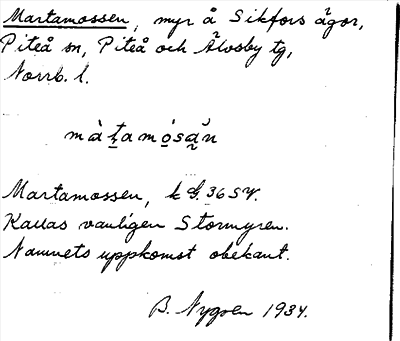 Martamossen, myr å Sikfors ägor,
Piteå sn, Piteå och Älvsby tg,
Norrb. l.
màtamósan
Martamossen, k G. 36 SV.
Kallas vanligen Stormyren.
Namnets uppkomst obekant.
B. Nygren 1934.